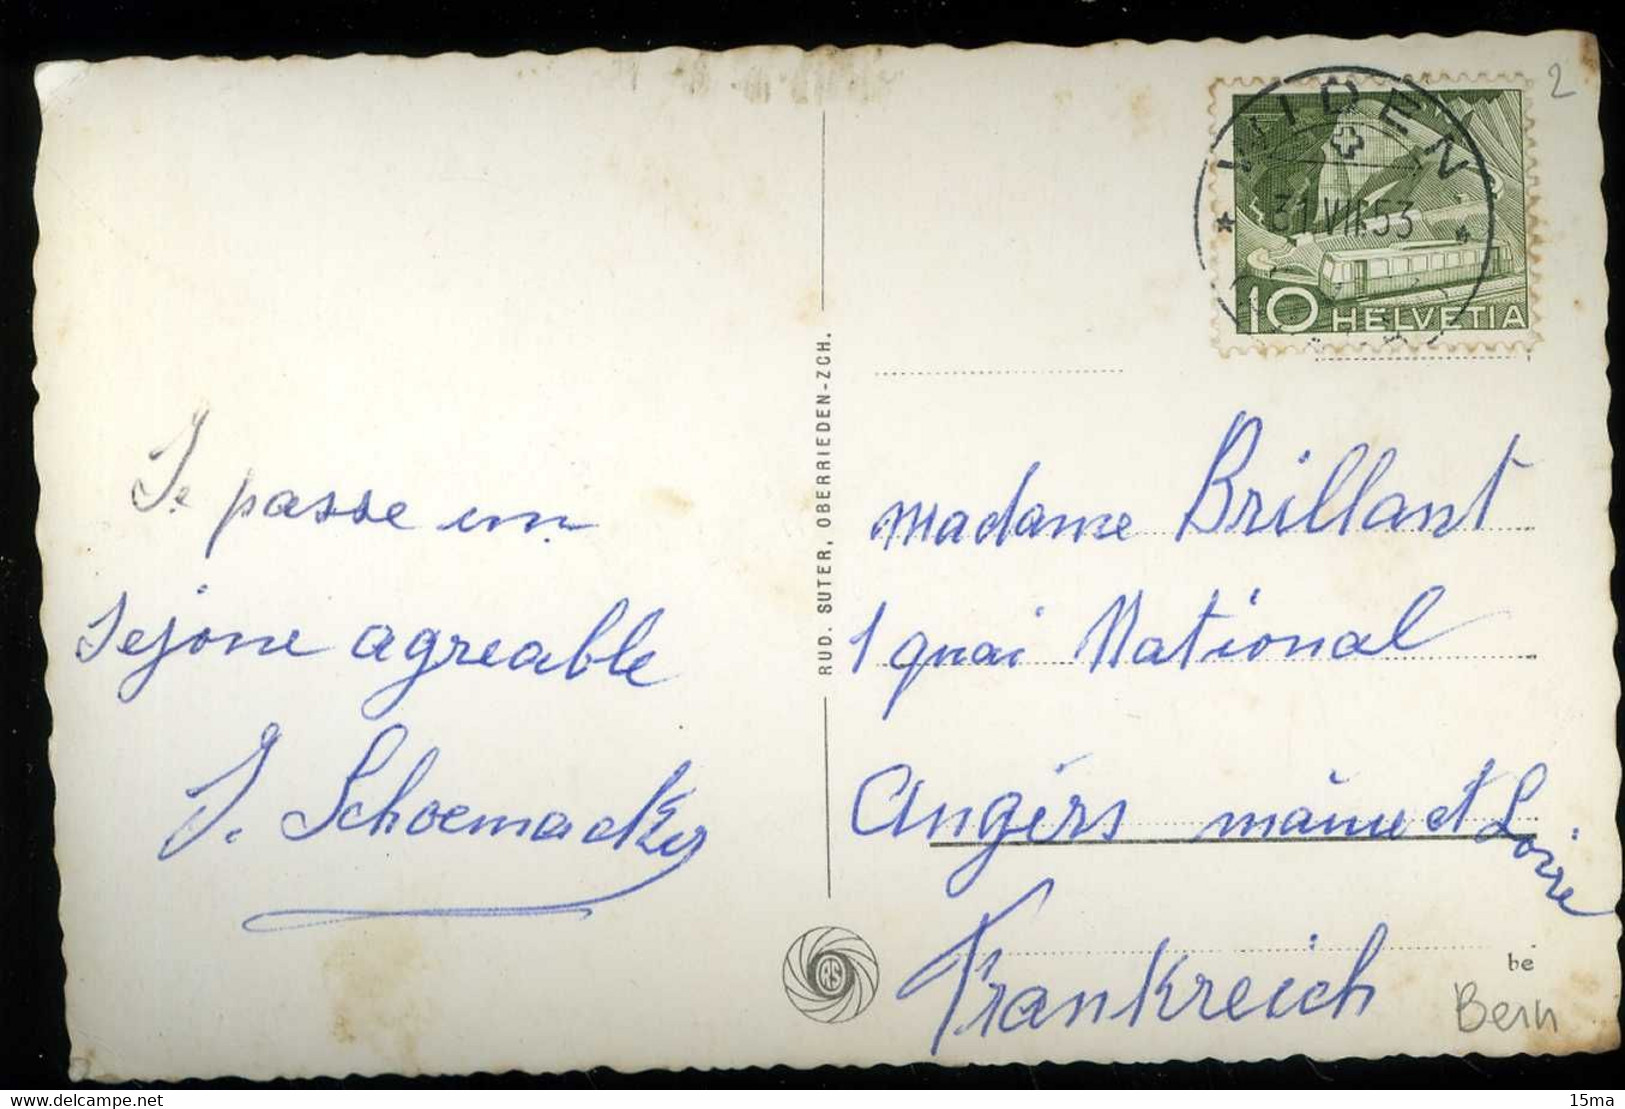 Je passe un
sejone agreable
J. Schoemacker
RUD. SUTER, OBERRIEDEN-ZCH.
2
WIDEN
31.VII.53
10 HELVETIA
madame Brillant
1 quai National
Angérs maine et Loire
Frankreich
be
Bern
delcampe.net
15ma